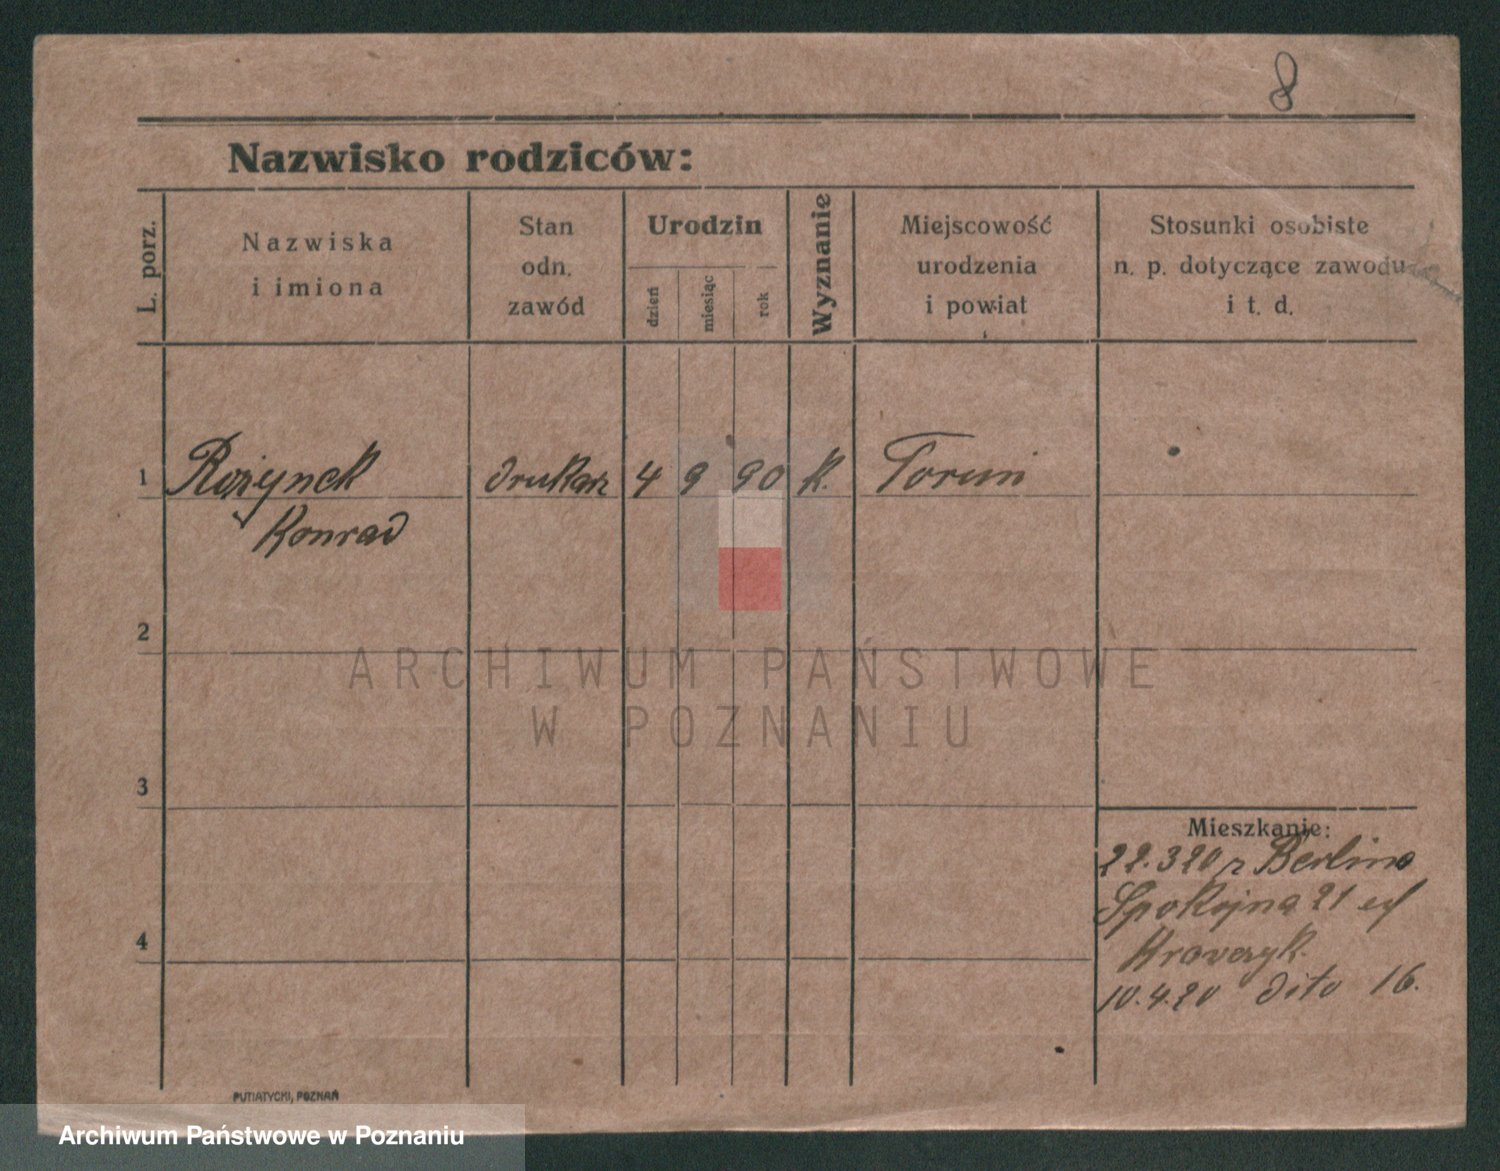 8
Nazwisko rodziców:
L. porz.
Nazwiska
i imiona
Stan
odn.
zawód
Urodzin
dzień
miesiąc
rok
Wyznanie
Miejscowość
urodzenia
i powiat
Stosunki osobiste
n. p. dotyczące zawodu
i t. d.
1 Rożynek drukarz 4 9 90 k. Toruń
Konrad
2
3
4
Mieszkanie:
22.3.20 z Berlina
Spokojna 21
10.4.20 dito 16.
PUTIATYCKI, POZNAŃ
ARCHIWUM PAŃSTWOWE
W POZNANIU
Archiwum Państwowe w Poznaniu